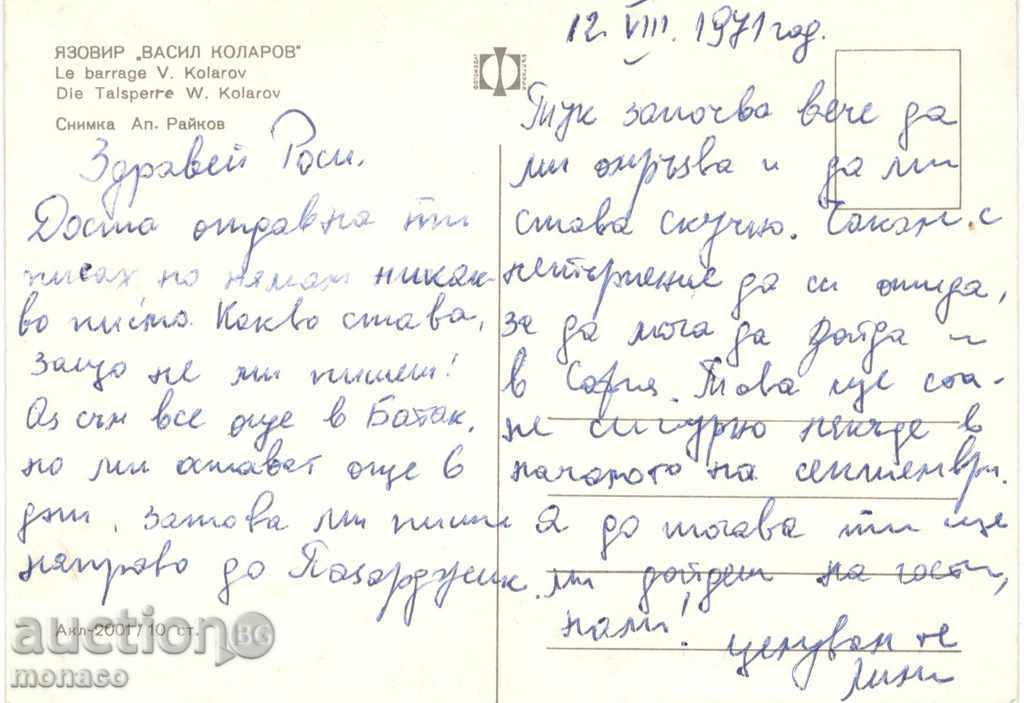 ЯЗОВИР „ВАСИЛ КОЛАРОВ"
Le barrage V. Kolarov
Die Talsperre W. Kolarov
Снимка Ап. Райков
Здравей Роси.
Доста отдавна ти
писах но нямам никак-
во писмо. Какво става,
защо не ми пишеш!
Аз съм все още в Батак,
но ми остават още 8
дни, затова ми пиши
направо до Пазарджик.
Акл-2001/10 ст.
12. VIII. 1971 год.
Тук започва вече да
ми омръзва и да ми
става скучно. Чакам с
нетърпение да си отида,
за да мога да дойда и
в София. Това ще ста-
не сигурно некъде в
началото на септември.
А до тогава ти ще
ми дойдеш на гости,
нали!
целувам те
auction BG
monaco